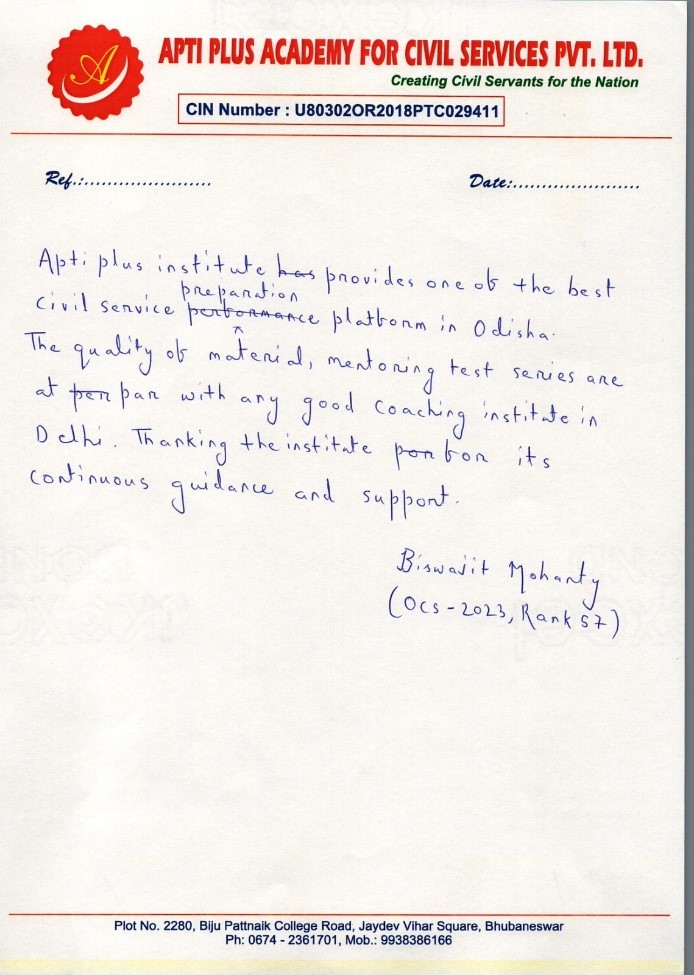 A
APTI PLUS ACADEMY FOR CIVIL SERVICES PVT. LTD.
Creating Civil Servants for the Nation
CIN Number : U80302OR2018PTC029411
Ref.:......................
Date:......................
Apti plus institute has provides one of the best
preparation
civil service performance platform in Odisha.
The quality of material, mentoring test series are
at per par with any good coaching institute in
Delhi. Thanking the institute por for its
continuous guidance and support.
Biswajit Mohanty
(OCS-2023, Rank 57)
Plot No. 2280, Biju Pattnaik College Road, Jaydev Vihar Square, Bhubaneswar
Ph: 0674 - 2361701, Mob.: 9938386166